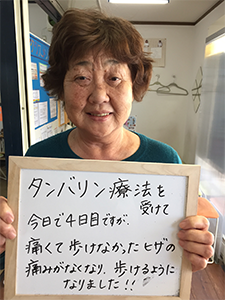 タンバリン療法を
受けて
今日で4日目ですが、
痛くて歩けなかったヒザの
痛みがなくなり、歩けるように
なりました!!